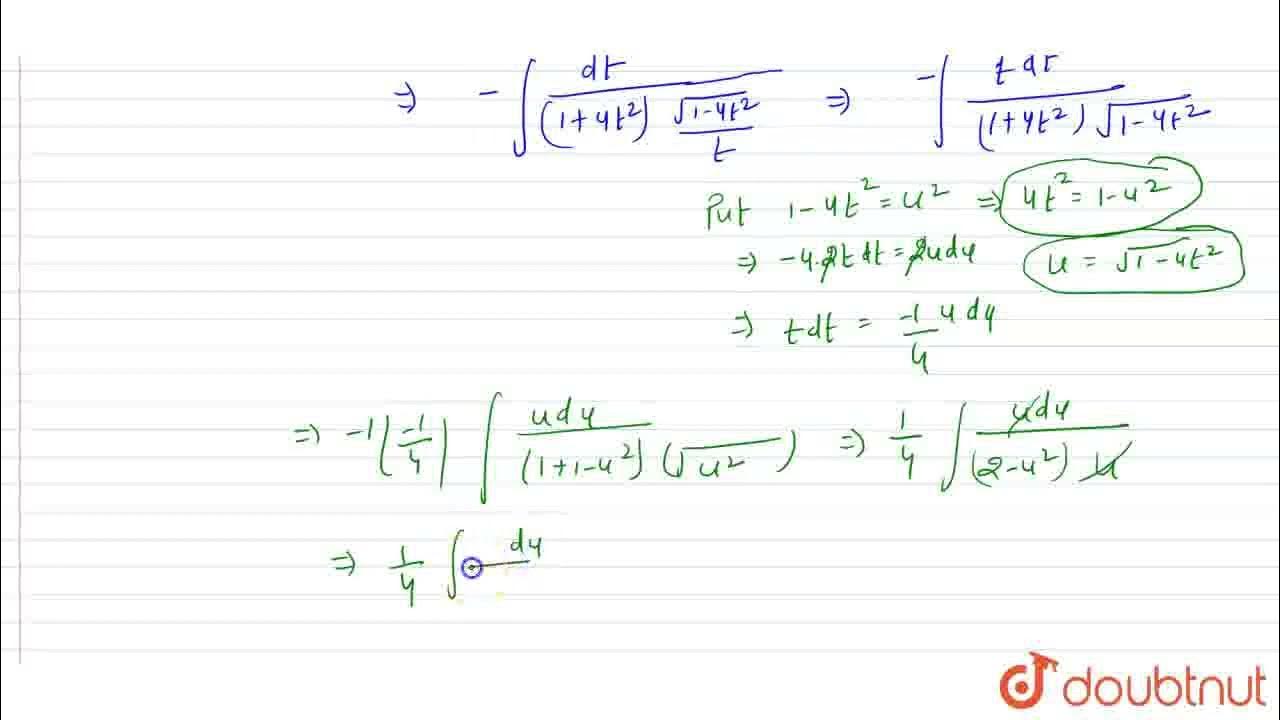 ⇒ -∫ dt/((1+4t²) (√(1-4t²)/t)) ⇒ -∫ t dt/((1+4t²) √(1-4t²))
Put 1-4t² = u² ⇒ 4t² = 1-u²
⇒ -4.2t dt = 2u du u = √(1-4t²)
⇒ t dt = -1/4 u du
⇒ -1(-1/4) ∫ u du/((1+1-u²) (√u²)) ⇒ 1/4 ∫ u du/((2-u²) u)
⇒ 1/4 ∫ du
doubtnut